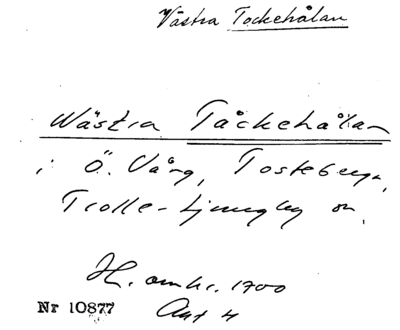 Västra Tockehålan
Wästra Tåckehålan
i Ö. Vång, Tosteberga,
Trolle-Ljungby sn.
H. omkr. 1700
Nr 10877 Akt 4